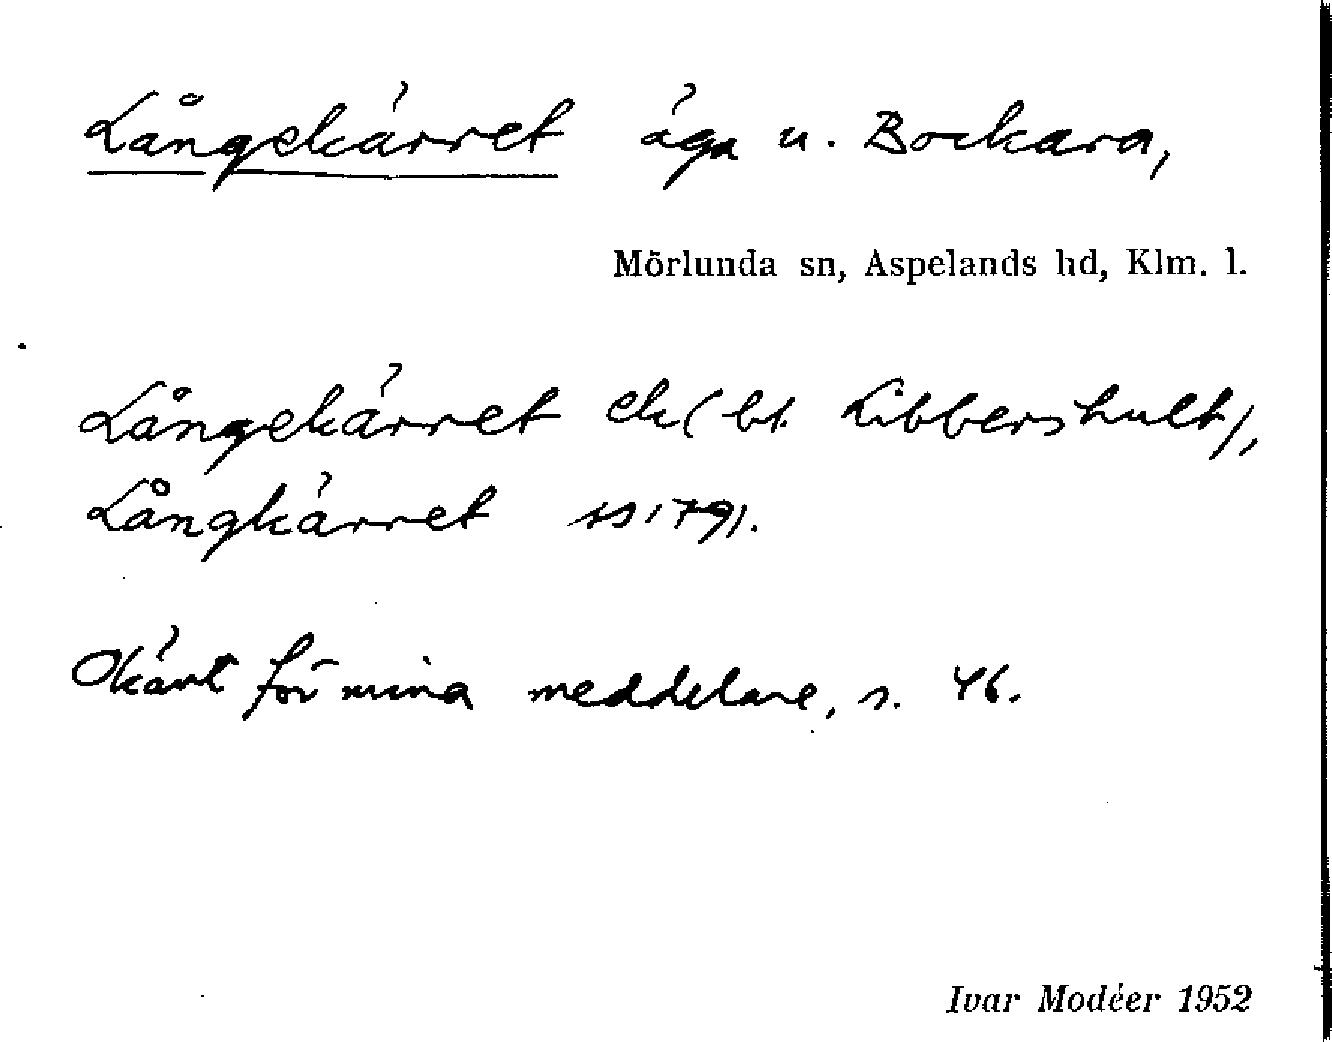 Långekärret äga u. Bockara,
Mörlunda sn, Aspelands hd, Klm. l.
Långekärret ek (bl. Libbershult),
Långkärret ss 1791.
Okänt för mina meddelare, s. 46.
Ivar Modéer 1952